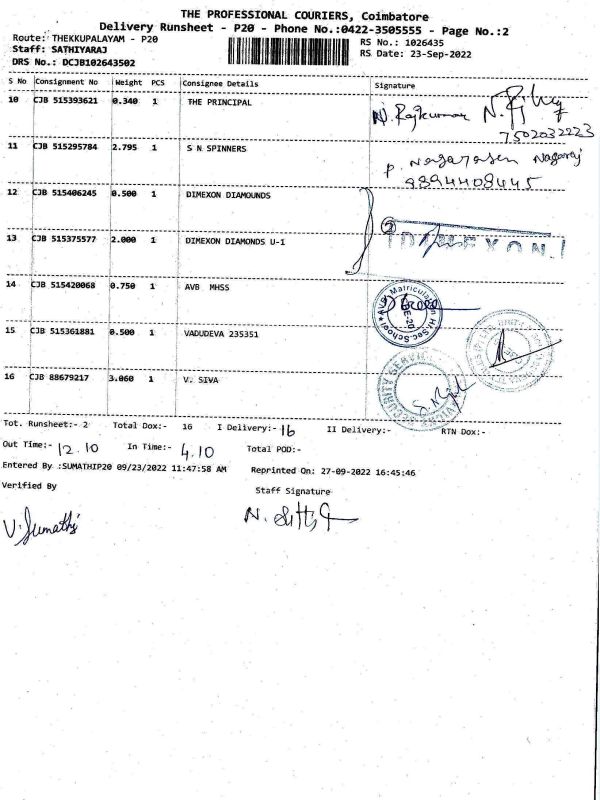 THE PROFESSIONAL COURIERS, Coimbatore
Delivery Runsheet - P20 - Phone No.:0422-3505555 - Page No.:2
Route: THEKKUPALAYAM - P20
RS No.: 1026435
Staff: SATHIYARAJ
RS Date: 23-Sep-2022
DRS No.: DCJB102643502
S No Consignment No Weight PCS Consignee Details Signature
10 CJB 515393621 0.340 1 THE PRINCIPAL N. Rajkumar
7502032223
11 CJB 515295784 2.795 1 S N SPINNERS P. Nagarasan Nagaraj
9894408445
12 CJB 515406245 0.500 1 DIMEXON DIAMOUNDS
13 CJB 515375577 2.000 1 DIMEXON DIAMONDS U-1
14 CJB 515420068 0.750 1 AVB MHSS
AVB Matriculation Hr.Sec.School
CBE-20
15 CJB 515361881 0.500 1 VADUDEVA 235351
16 CJB 88679217 3.060 1 V. SIVA
SECURITY SERVICE
Tot. Runsheet:- 2 Total Dox:- 16 I Delivery:- 16 II Delivery:- RTN Dox:-
Out Time:- 12.10 In Time:- 4.10 Total POD:-
Entered By :SUMATHIP20 09/23/2022 11:47:58 AM Reprinted On: 27-09-2022 16:45:46
Verified By Staff Signature
V. Sumathi